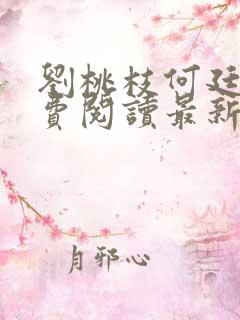 劉桃枝何廷
費閱讀最新
月邪心